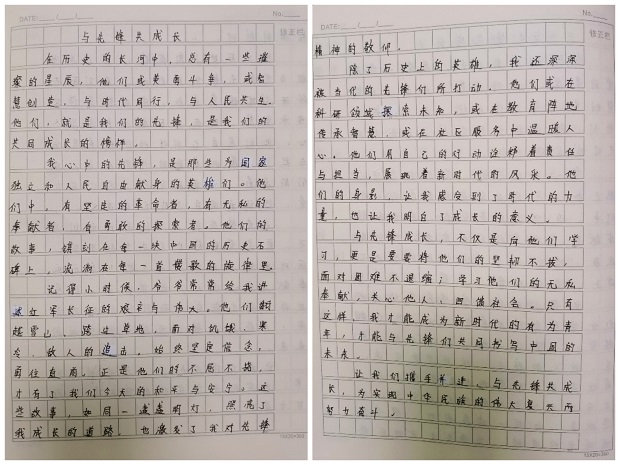 DATE: / /
No.
与先锋共成长
在历史的长河中,总有一些璀
璨的星辰,他们或英勇斗争,或智
慧创造,与时代同行,与人民共生.
他们,就是我们的先锋,是我们的
共同成长的榜样。
我心中的先锋,是那些为国家
独立和人民自由献身的英雄们。他
们中,有坚定的革命者,有无私的
奉献者,有勇敢的探索者。他们的
故事,镌刻在每一块中国的历史石
碑上,流淌在每一首赞歌的旋律里.
记得小时候,爷爷常常给我讲
述红军长征的艰辛与伟大。他们翻
越雪山、踏过草地,面对饥饿、寒
冷、敌人的追击,始终坚定信念,
勇往直前。正是他们的不屈不挠,
才有了我们今天的和平与安宁。这
些故事,如同一盏盏明灯,照亮了
我成长的道路,也激发了我对先锋
DATE: / /
No.
精神的敬仰。
除了历史上的英雄,我还深深
被当代的先锋们所打动。他们或在
科研领域探索未知,或在教育阵地
传承智慧,或在社区服务中温暖人
心。他们用自己的行动诠释着责任
与担当,展现着新时代的风采。他
们的身影,让我感受到了时代的力
量,也让我明白了成长的意义。
与先锋成长,不仅是向他们学
习,更是要像他们的坚韧不拔,
面对困难不退缩;学习他们的无私
奉献,关心他人,回馈社会。只有
这样,我才能成为新时代的有为青
年,才能与先锋们共同书写中国的
未来。
让我们携手并进,与先锋共成
长,为实现中华民族的伟大复兴而
努力奋斗。